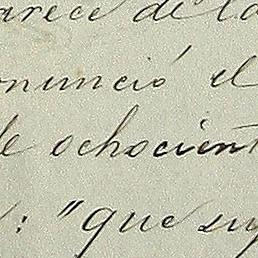 arece de la
onunció el
de ochocient
: "que su